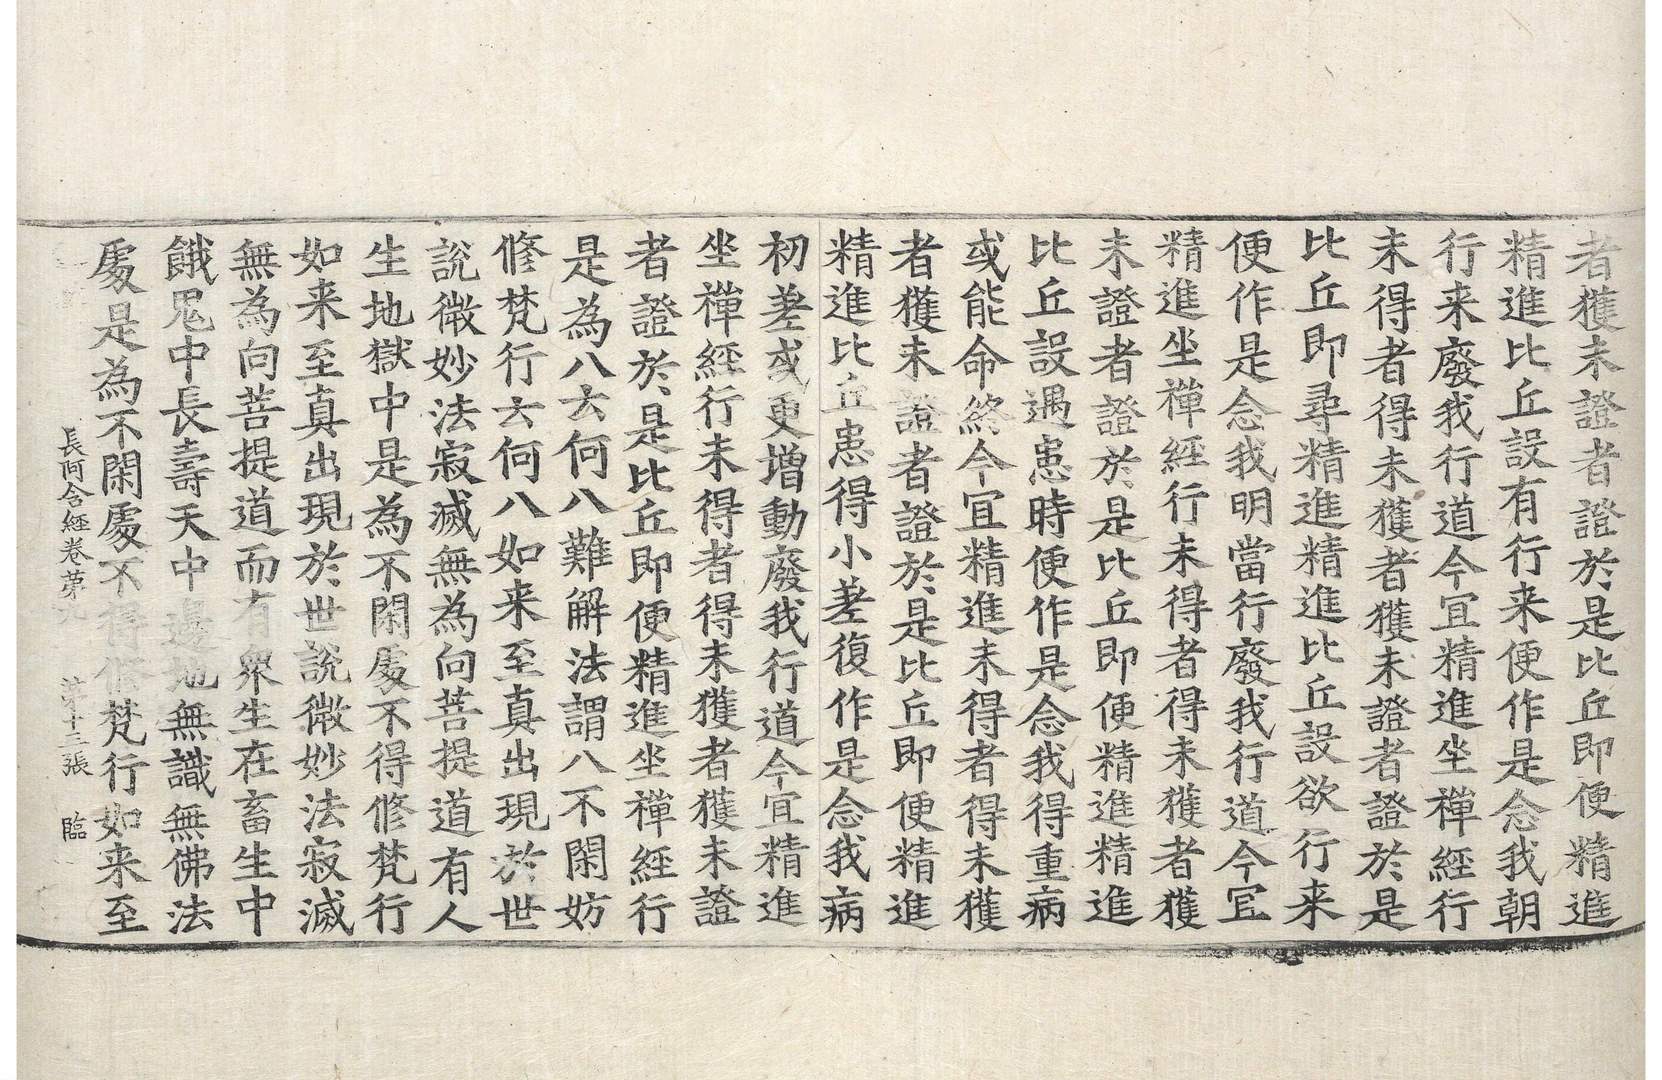 者獲未證者證於是比丘即便精進
精進比丘設有行来便作是念我朝
行来廢我行道今宜精進坐禪經行
未得者得未獲者獲未證者證於是
比丘即尋精進精進比丘設欲行来
便作是念我明當行廢我行道今宜
精進坐禪經行未得者得未獲者獲
未證者證於是比丘即便精進精進
比丘設遇患時便作是念我得重病
或能命終今宜精進未得者得未獲
者獲未證者證於是比丘即便精進
精進比丘患得小差復作是念我病
初差或更増動廢我行道今宜精進
坐禪經行未得者得未獲者獲未證
者證於是比丘即便精進坐禪經行
是為八云何八難解法謂八不閑妨
修梵行云何八如来至真出現於世
說微妙法寂滅無為向菩提道有人
生地獄中是為不閑處不得修梵行
如来至真出現於世說微妙法寂滅
無為向菩提道而有衆生在畜生中
餓鬼中長壽天中邊地無識無佛法
處是為不閑處不得修梵行如来至
長阿含經卷第九 第十三張 臨